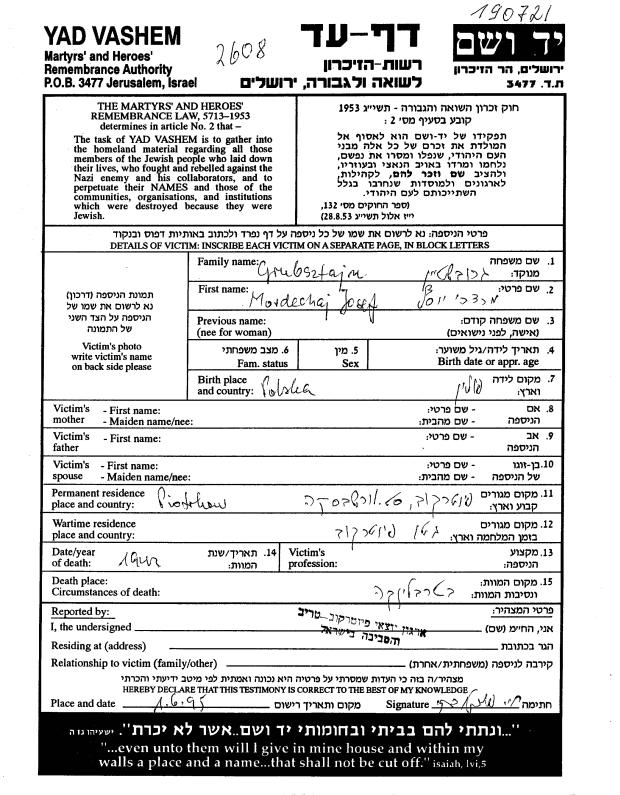 190721
YAD VASHEM
Martyrs' and Heroes'
Remembrance Authority
P.O.B. 3477 Jerusalem, Israel
2608
דף-עד
רשות-הזיכרון
לשואה ולגבורה, ירושלים
יד ושם
ירושלים, הר הזיכרון
ת.ד. 3477
THE MARTYRS' AND HEROES'
REMEMBRANCE LAW, 5713–1953
determines in article No. 2 that –
The task of YAD VASHEM is to gather into
the homeland material regarding all those
members of the Jewish people who laid down
their lives, who fought and rebelled against the
Nazi enemy and his collaborators, and to
perpetuate their NAMES and those of the
communities, organisations, and institutions
which were destroyed because they were
Jewish.
חוק זכרון השואה והגבורה - תשי״ג 1953
קובע בסעיף מס׳ 2 :
תפקידו של יד-ושם הוא לאסוף אל
המולדת את זכרם של כל אלה מבני
העם היהודי, שנפלו ומסרו את נפשם,
נלחמו ומרדו באויב הנאצי ובעוזריו,
ולהציב שם וזכר להם, לקהילות,
לארגונים ולמוסדות שנחרבו בגלל
השתייכותם לעם היהודי.
(ספר החוקים מס׳ 132,
י״ז אלול תשי״ג 28.8.53)
פרטי הניספה: נא לרשום את שמו של כל ניספה על דף נפרד ולכתוב באותיות דפוס ובנקוד
DETAILS OF VICTIM: INSCRIBE EACH VICTIM ON A SEPARATE PAGE, IN BLOCK LETTERS
תמונת הניספה (דרכון)
נא לרשום את שמו של
הניספה על הצד השני
של התמונה
Victim's photo
write victim's name
on back side please
Family name: Grubsztajn גרובשטיין 1. שם משפחה
מנוקד:
First name: Mordechaj Josef מרדכי יוסף 2. שם פרטי:
Previous name: 3. שם משפחה קודם:
(nee for woman) (אישה, לפני נישואים)
6. מצב משפחתי 5. מין 4. תאריך לידה/גיל משוער:
Fam. status Sex Birth date or appr. age
Birth place Polska פולין 7. מקום לידה
and country: וארץ:
Victim's - First name: - שם פרטי: 8. אם
mother - Maiden name/nee: - שם מבית: הניספה
Victim's - First name: - שם פרטי: 9. אב
father הניספה
Victim's - First name: - שם פרטי: 10. בן-זוגו
spouse - Maiden name/nee: - שם מבית: של הניספה
Permanent residence Piotrkow פיוטרקוב, 11. מקום מגורים
place and country: קבוע וארץ:
Wartime residence גטו פיוטרקוב 12. מקום מגורים
place and country: בזמן המלחמה וארץ:
Date/year 1942 14. תאריך/שנת Victim's 13. מקצוע
of death: המוות: profession: הניספה:
Death place: בטרבלינקה 15. מקום המוות:
Circumstances of death: ונסיבות המוות:
Reported by: פרטי המצהיר:
I, the undersigned ארגון יוצאי פיוטרקוב-טריב. אני, החי״מ (שם)
והסביבה בישראל
Residing at (address) הגר בכתובת
Relationship to victim (family/other) קירבה לניספה (משפחתית/אחרת)
מצהיר/ה בזה כי העדות שמסרתי על פרטיה היא נכונה ואמתית לפי מיטב ידיעתי והכרתי
HEREBY DECLARE THAT THIS TESTIMONY IS CORRECT TO THE BEST OF MY KNOWLEDGE
Place and date 1.6.95 מקום ותאריך רישום Signature חתימה
"...ונתתי להם בביתי ובחומותי יד ושם...אשר לא יכרת". ישעיהו נו ה
"...even unto them will I give in mine house and within my
walls a place and a name...that shall not be cut off." isaiah, lvi,5